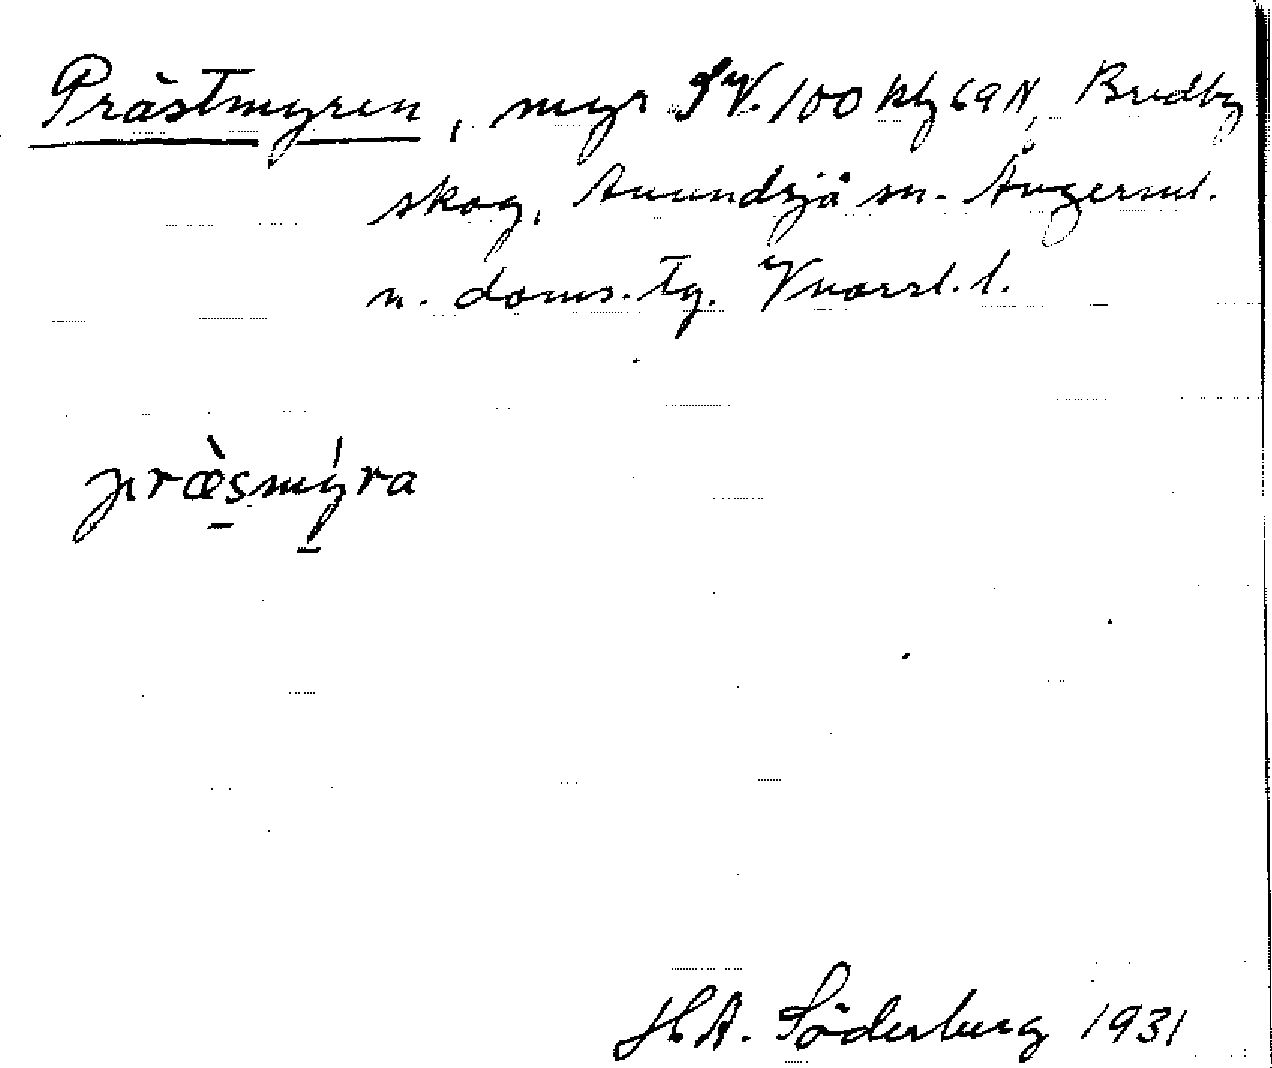 Prästmyren, myr SV. 100 klg 69 N, Bredby
skog, Anundsjå sn. Ångerml.
n. doms. tg. Vnorrl. l.
præ̀smýra
H A. Söderberg 1931